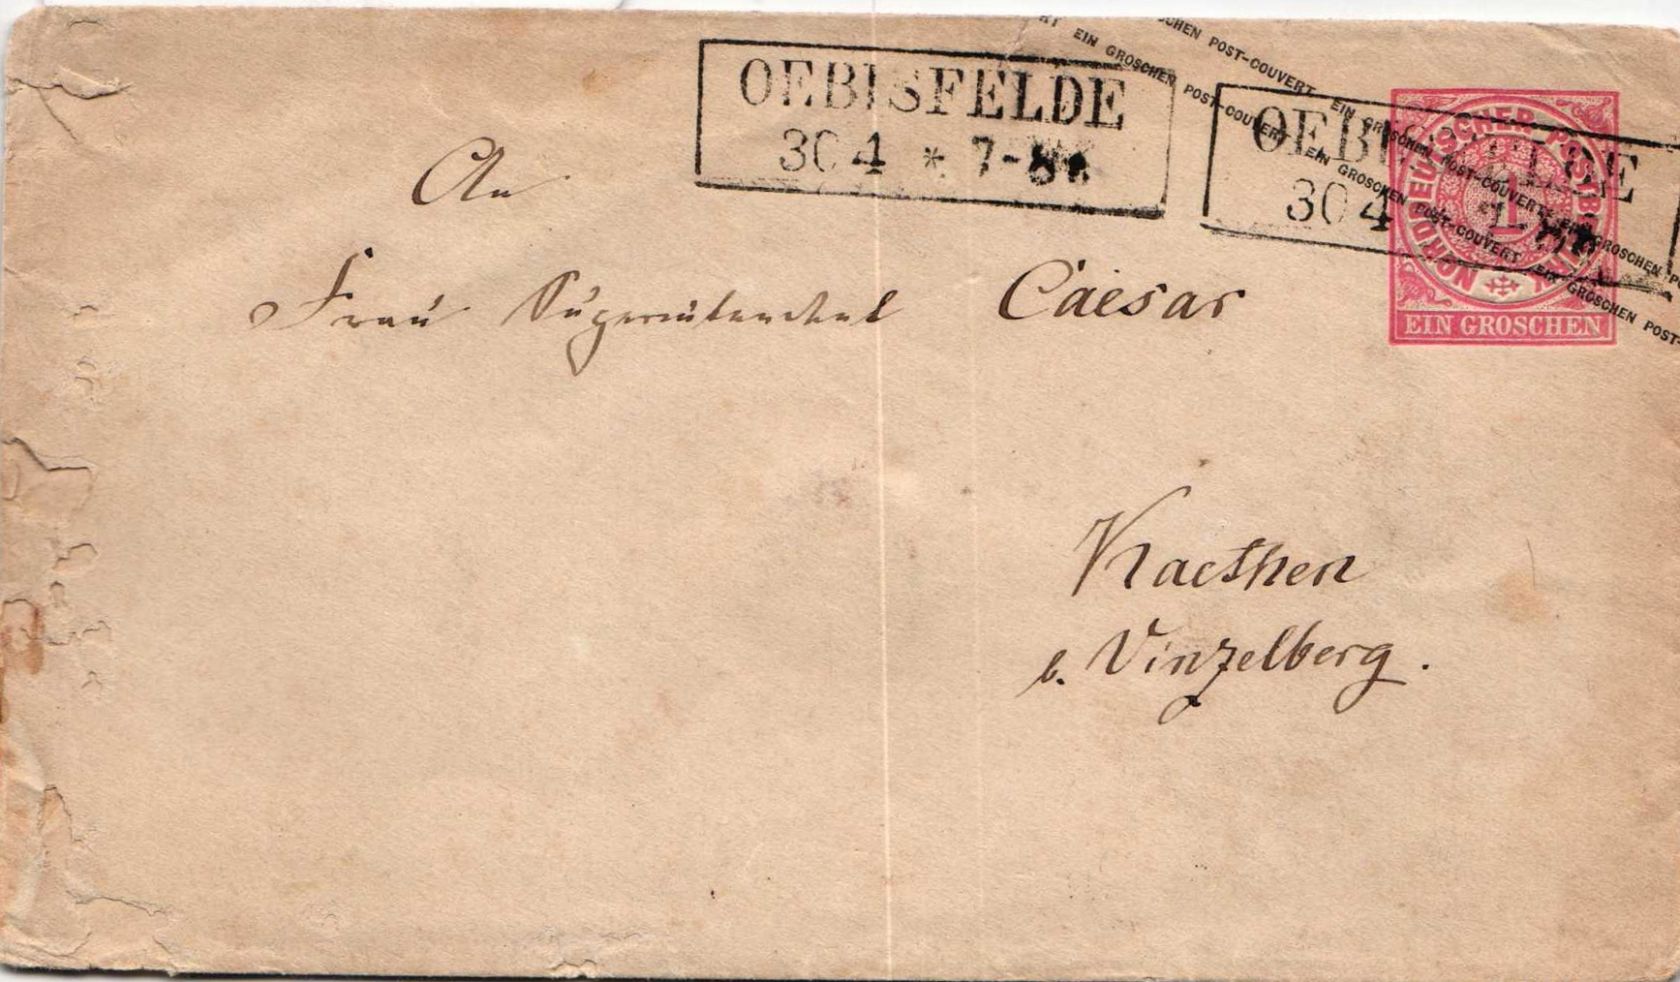 OEBISFELDE
30 4 * 7-8
OEBISFELDE
30 4
EIN GROSCHEN POST-COUVERT EIN GROSCHEN POST-COUVERT EIN GROSCHEN
EIN GROSCHEN POST-COUVERT EIN GROSCHEN POST-COUVERT EIN GROSCHEN POST-
NORDDEUTSCHER POSTBEZIRK
1
EIN GROSCHEN
An
Frau Superintendent Caesar
Kaethen
b. Vinzelberg.